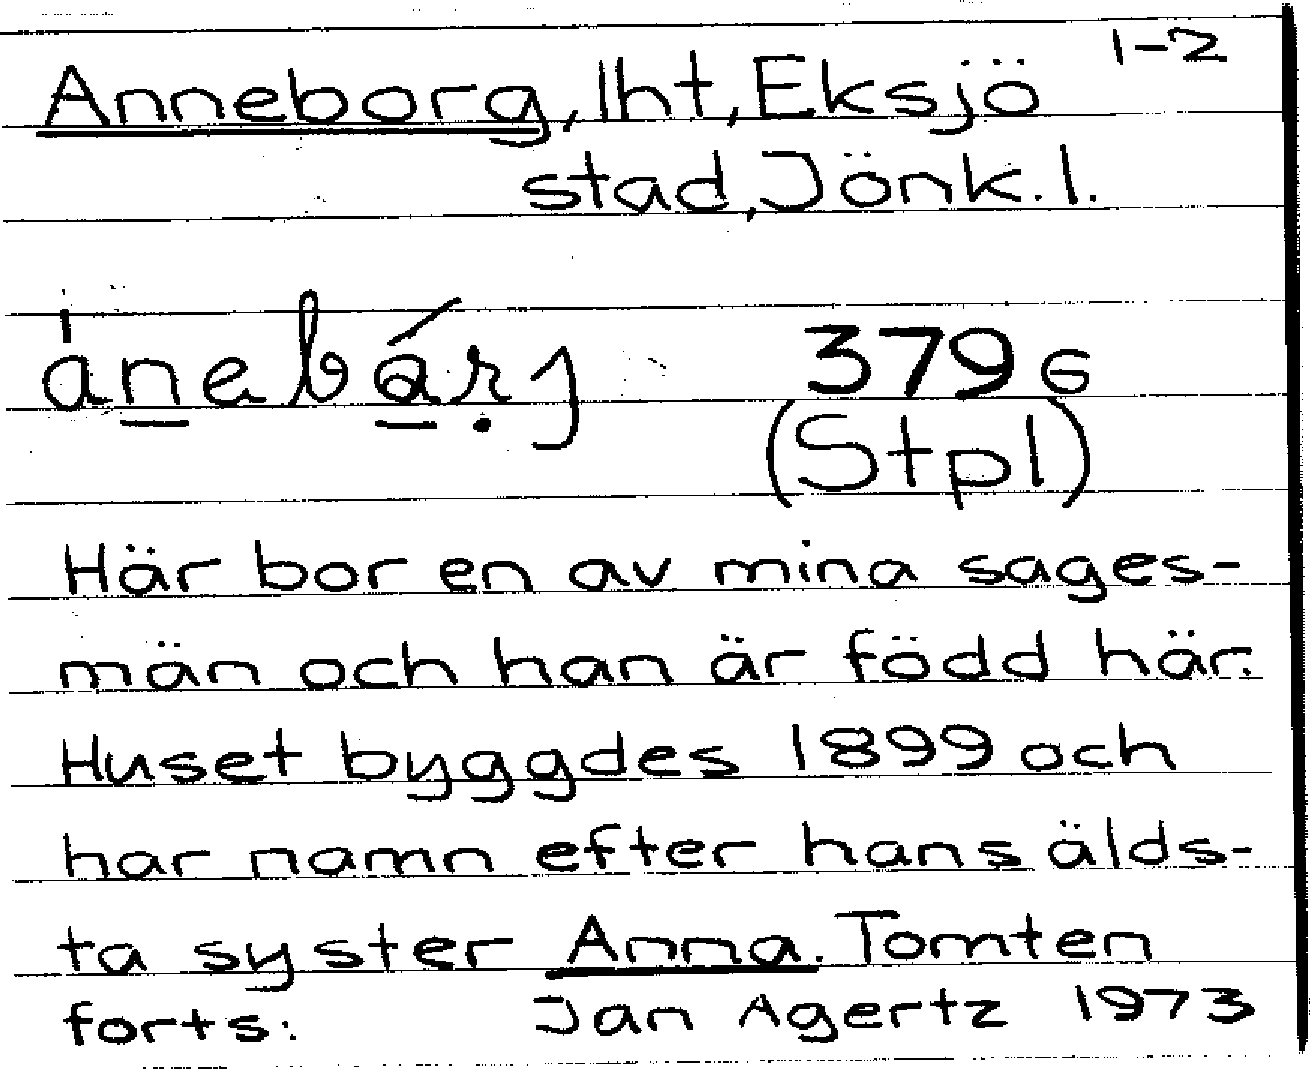 1-2
Anneborg, lht, Eksjö
stad, Jönk. l.
379 G
(Stpl)
Här bor en av mina sages-
män och han är född här.
Huset byggdes 1899 och
har namn efter hans älds-
ta syster Anna. Tomten
forts: Jan Agertz 1973